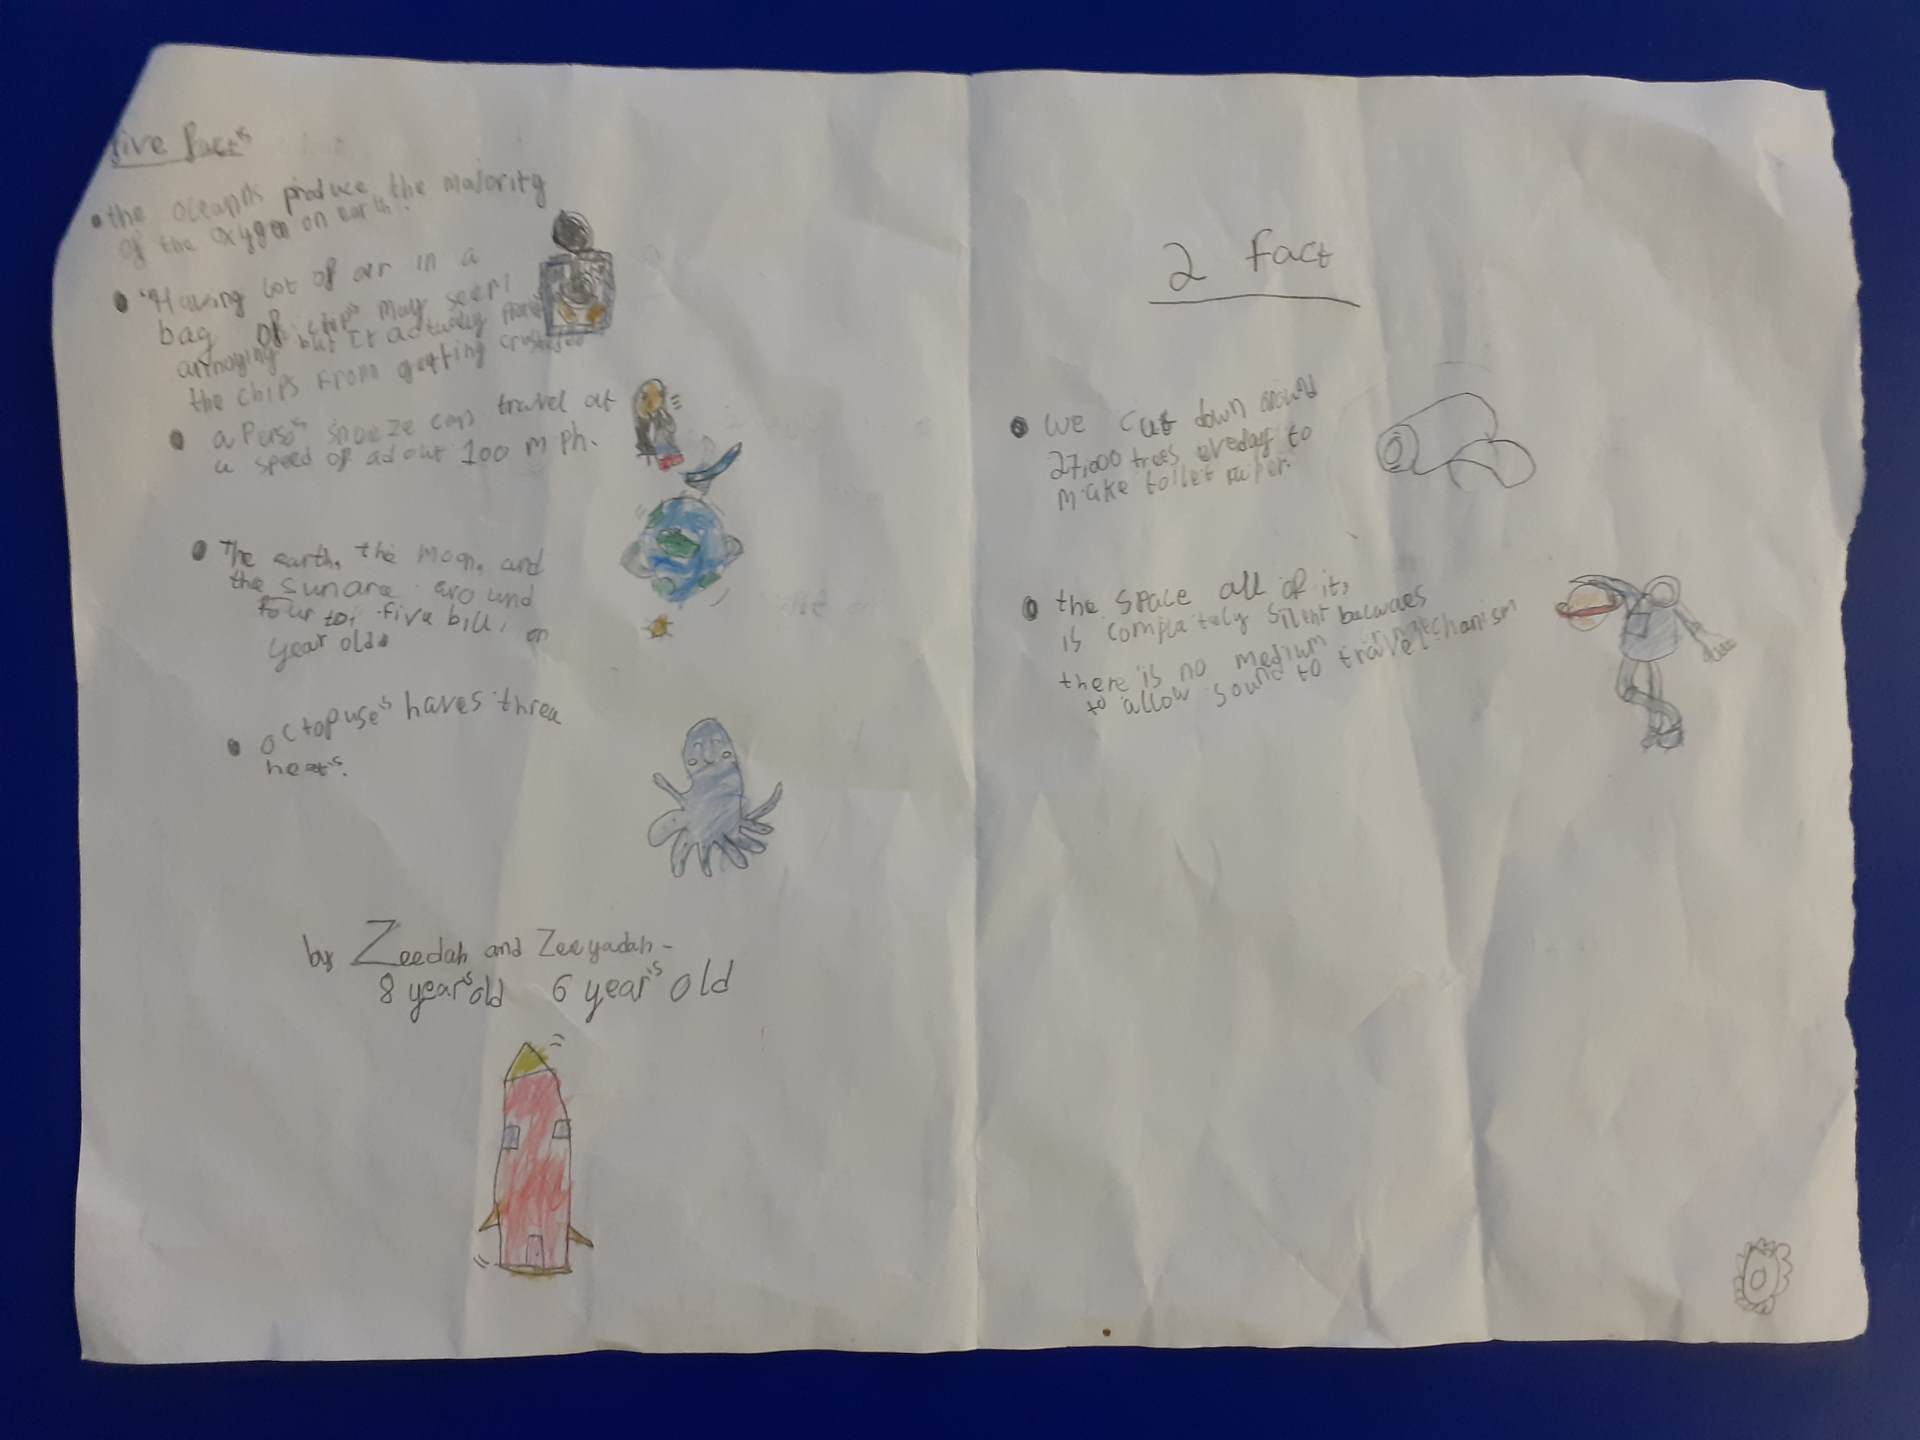 five facts
the oceanns produce the majority
of the oxygen on earth.
"Having lot of air in a
bag of chips may seem
annoying but it actually
the chips from getting
a Person's sneeze can travel at
a speed of adout 100 mph.
The earth, the moon, and
the sun are around
four to, five billi on
year old.
octopuse's haves three
heat's.
by Zeedah and Zeeyadah -
8 year's old 6 year's old
2 fact
we cut down around
27,000 trees everday to
make toilet paper.
the space all of it,
is completely silent
there is no medium mechanism
to allow sound to travel